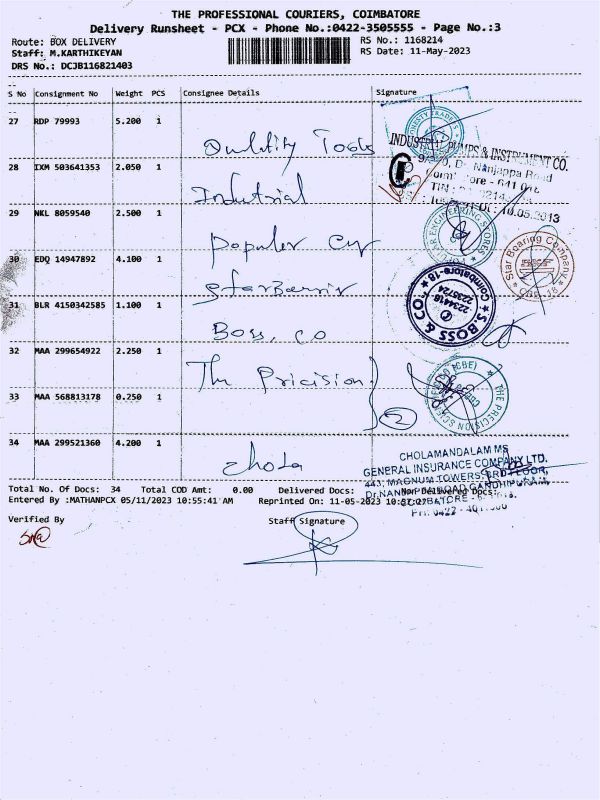 THE PROFESSIONAL COURIERS, COIMBATORE
Delivery Runsheet - PCX - Phone No.:0422-3505555 - Page No.:3
Route: BOX DELIVERY
RS No.: 1168214
Staff: M.KARTHIKEYAN
RS Date: 11-May-2023
DRS No.: DCJB116821403
S No Consignment No Weight PCS Consignee Details Signature
27 RDP 79993 5.200 1
Quality Tools
28 IXM 503641353 2.050 1
Industrial
INDUSTRIAL PUMPS & INSTRUMENT CO.
Nanjappa Road
29 NKL 8059540 2.500 1
Populer
ENGINEERING STORES
30 EDQ 14947892 4.100 1
Star Boaring Company
CBE-18
31 BLR 4150342585 1.100 1
Boss, Co
S. BOSS & CO
Coimbatore-18
2234418
2235724
32 MAA 299654922 2.250 1
The Pricision
33 MAA 568813178 0.250 1
2
THE PRECISION
34 MAA 299521360 4.200 1
Chola
CHOLAMANDALAM MS
GENERAL INSURANCE COMPANY LTD.
443, MAGNUM TOWERS, 3RD FLOOR,
Dr.NANJAPPA ROAD, GANDHIPURAM,
Total No. Of Docs: 34 Total COD Amt: 0.00 Delivered Docs: Non Delivered Docs:
Entered By :MATHANPCX 05/11/2023 10:55:41 AM Reprinted On: 11-05-2023 10:57:27
Verified By
Staff Signature